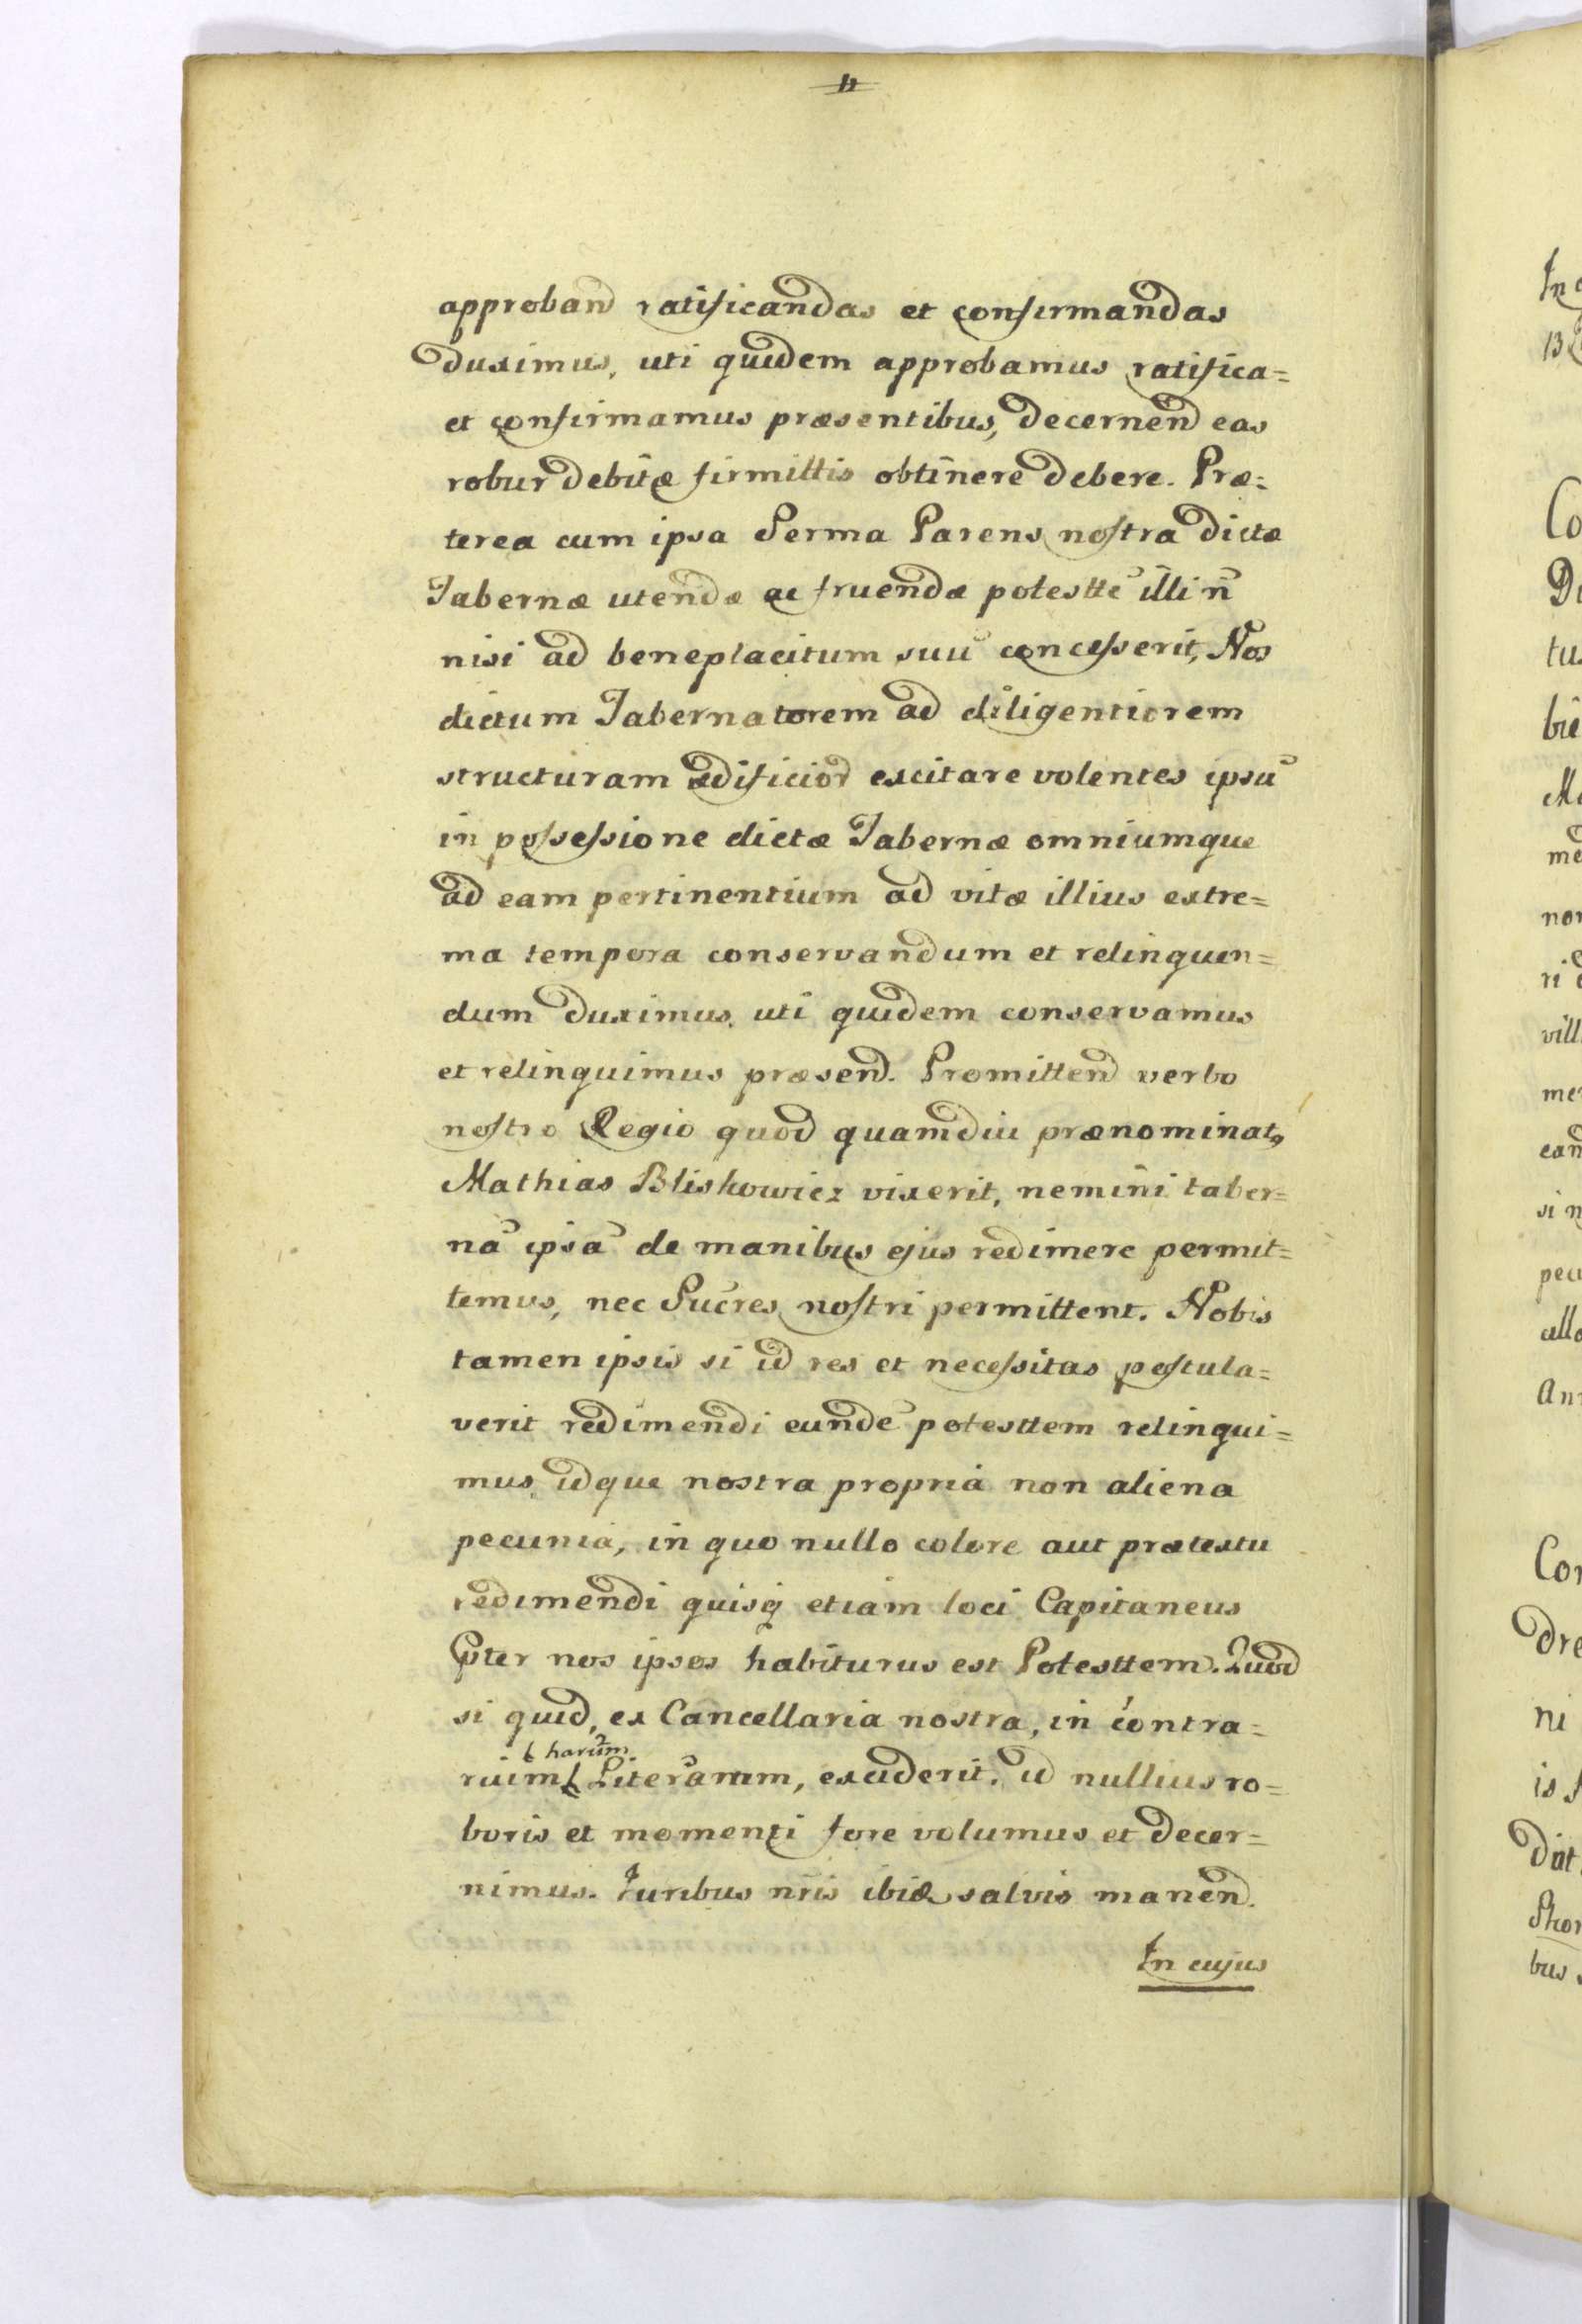 approband ratificandas et confirmandas
duximus, uti quidem approbamus ratifica=
et confirmamus præsentibus, decernend eas
robur debitæ firmittis obtinere debere. Præ=
terea cum ipsa Serma Parens nostra dictæ
Tabernæ utendæ ac fruendæ potestte᷃ illi n᷃
nisi ad beneplacitum suu᷃ concesserit, Nos
dictum Tabernatorem ad diligentiorem
structuram ædificior excitare volentes ipsu᷃
in possessione dictæ Tabernæ omniumque
ad eam pertinentium ad vitæ illius extre=
ma tempora conservandum et relinquen=
dum duximus, uti quidem conservamus
et relinquimus præsend. Promittend verbo
nostro Regio quod quamdiu prænominatꝰ
Mathias Bliskowicz vixerit, nemini taber=
na᷃ ipsa᷃ de manibus ejus redimere permit=
temus, nec Suc̃res nostri permittent. Nobis
tamen ipsis si id res et necessitas postula=
verit redimendi eunde᷃ potesttem relinqui=
mus, idque nostra propria non aliena
pecunia, in quo nullo colore aut prætextu
redimendi quisq etiam loci Capitaneus
pter nos ipsos habiturus est Potesttem. Quod
si quid, ex Cancellaria nostra, in contra=
harum.
rium Literarum, exciderit, id nullius ro=
boris et momenti fore volumus et decer=
nimus. Juribus nr̃is ibid salvis manend.
In cujus